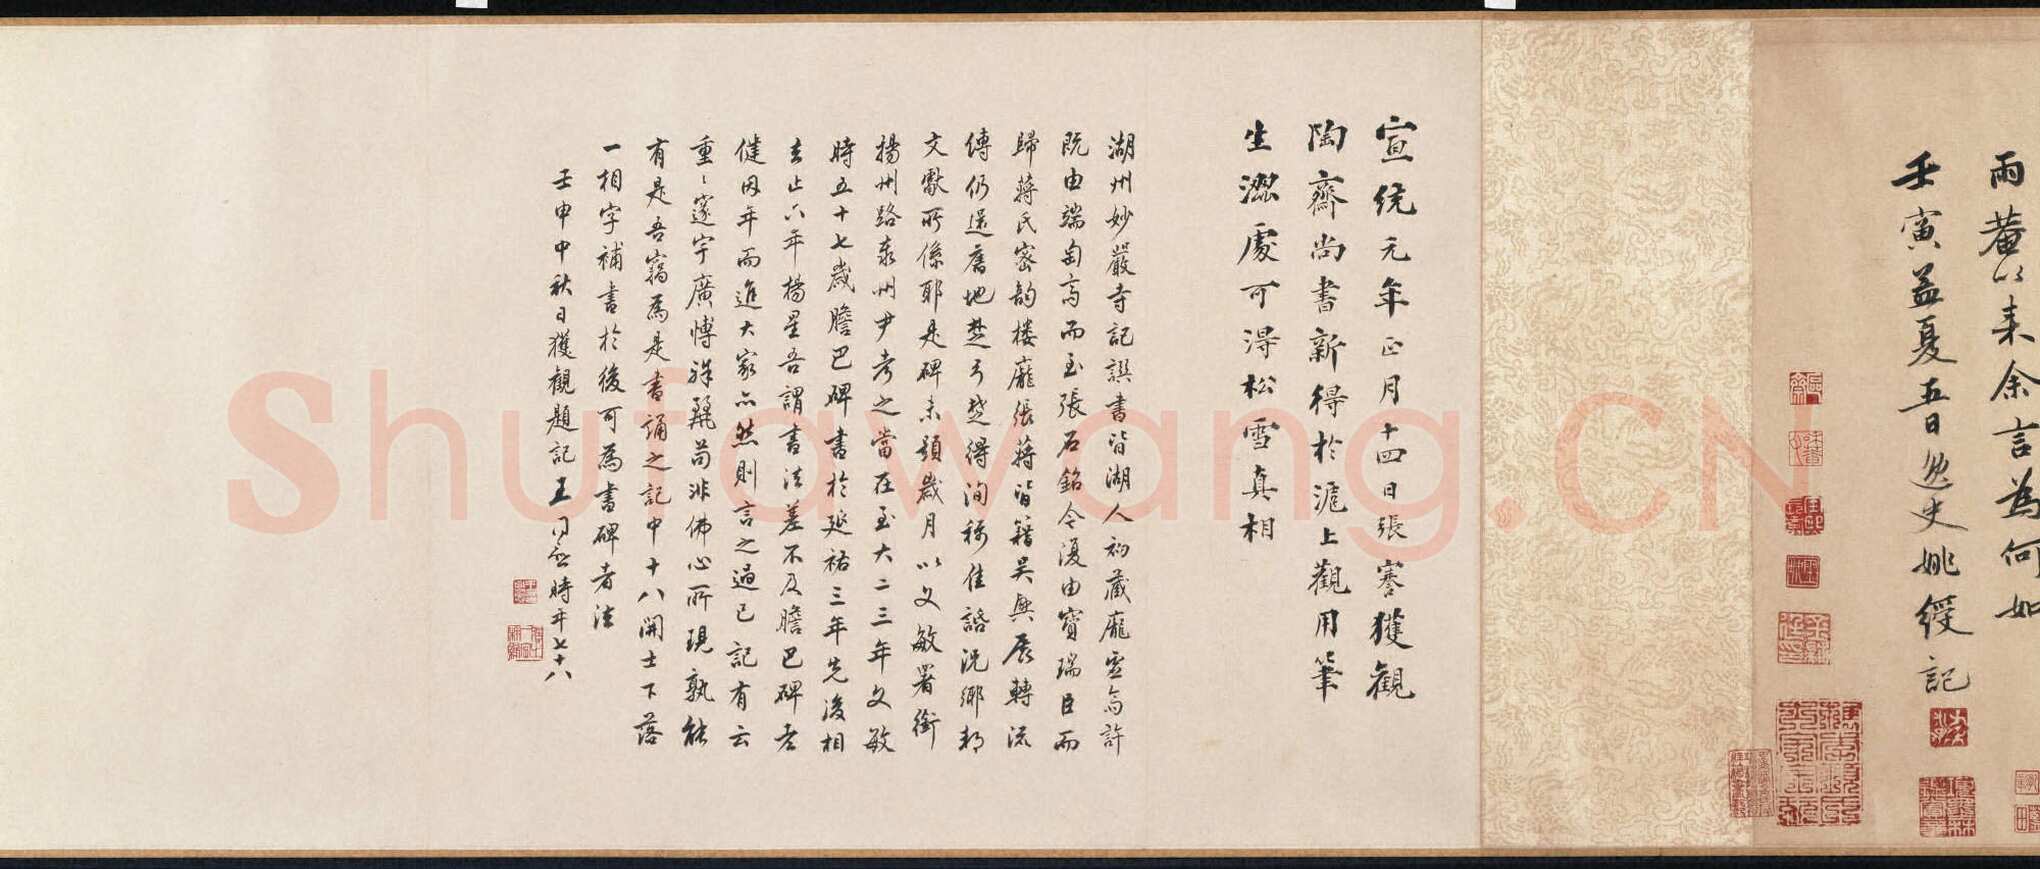 雨菴以来余言為何如
壬寅孟夏五日逸史姚綬記
宣統元年正月十四日張謇獲觀
陶齋尚書新得於滬上觀用筆
生澀處可得松雪真相
湖州妙嚴寺記譔書皆湖人初藏龐虛齋許
既由端匋齋而至張石銘今復由寶瑞臣而
歸蔣氏密韵樓龐張蔣皆籍吳興展轉流
傳仍還舊地楚弓楚得洵稱佳話況鄉邦
文獻所係耶是碑未題歲月以文敏署銜
揚州路泰州尹考之當在至大二三年文敏
時五十七歲膽巴碑書於延祐三年先後相
去止六年楊星吾謂書法差不及膽巴碑老
健因年而進大家亦然則言之過已記有云
重重邃宇廣博殊麗苟非佛心所現孰能
有是吾竊為是書誦之記中十八開士下落
一相字補書於後可為書碑者法
壬申中秋日獲觀題記王同愈時年七十八
Shufawang.CN